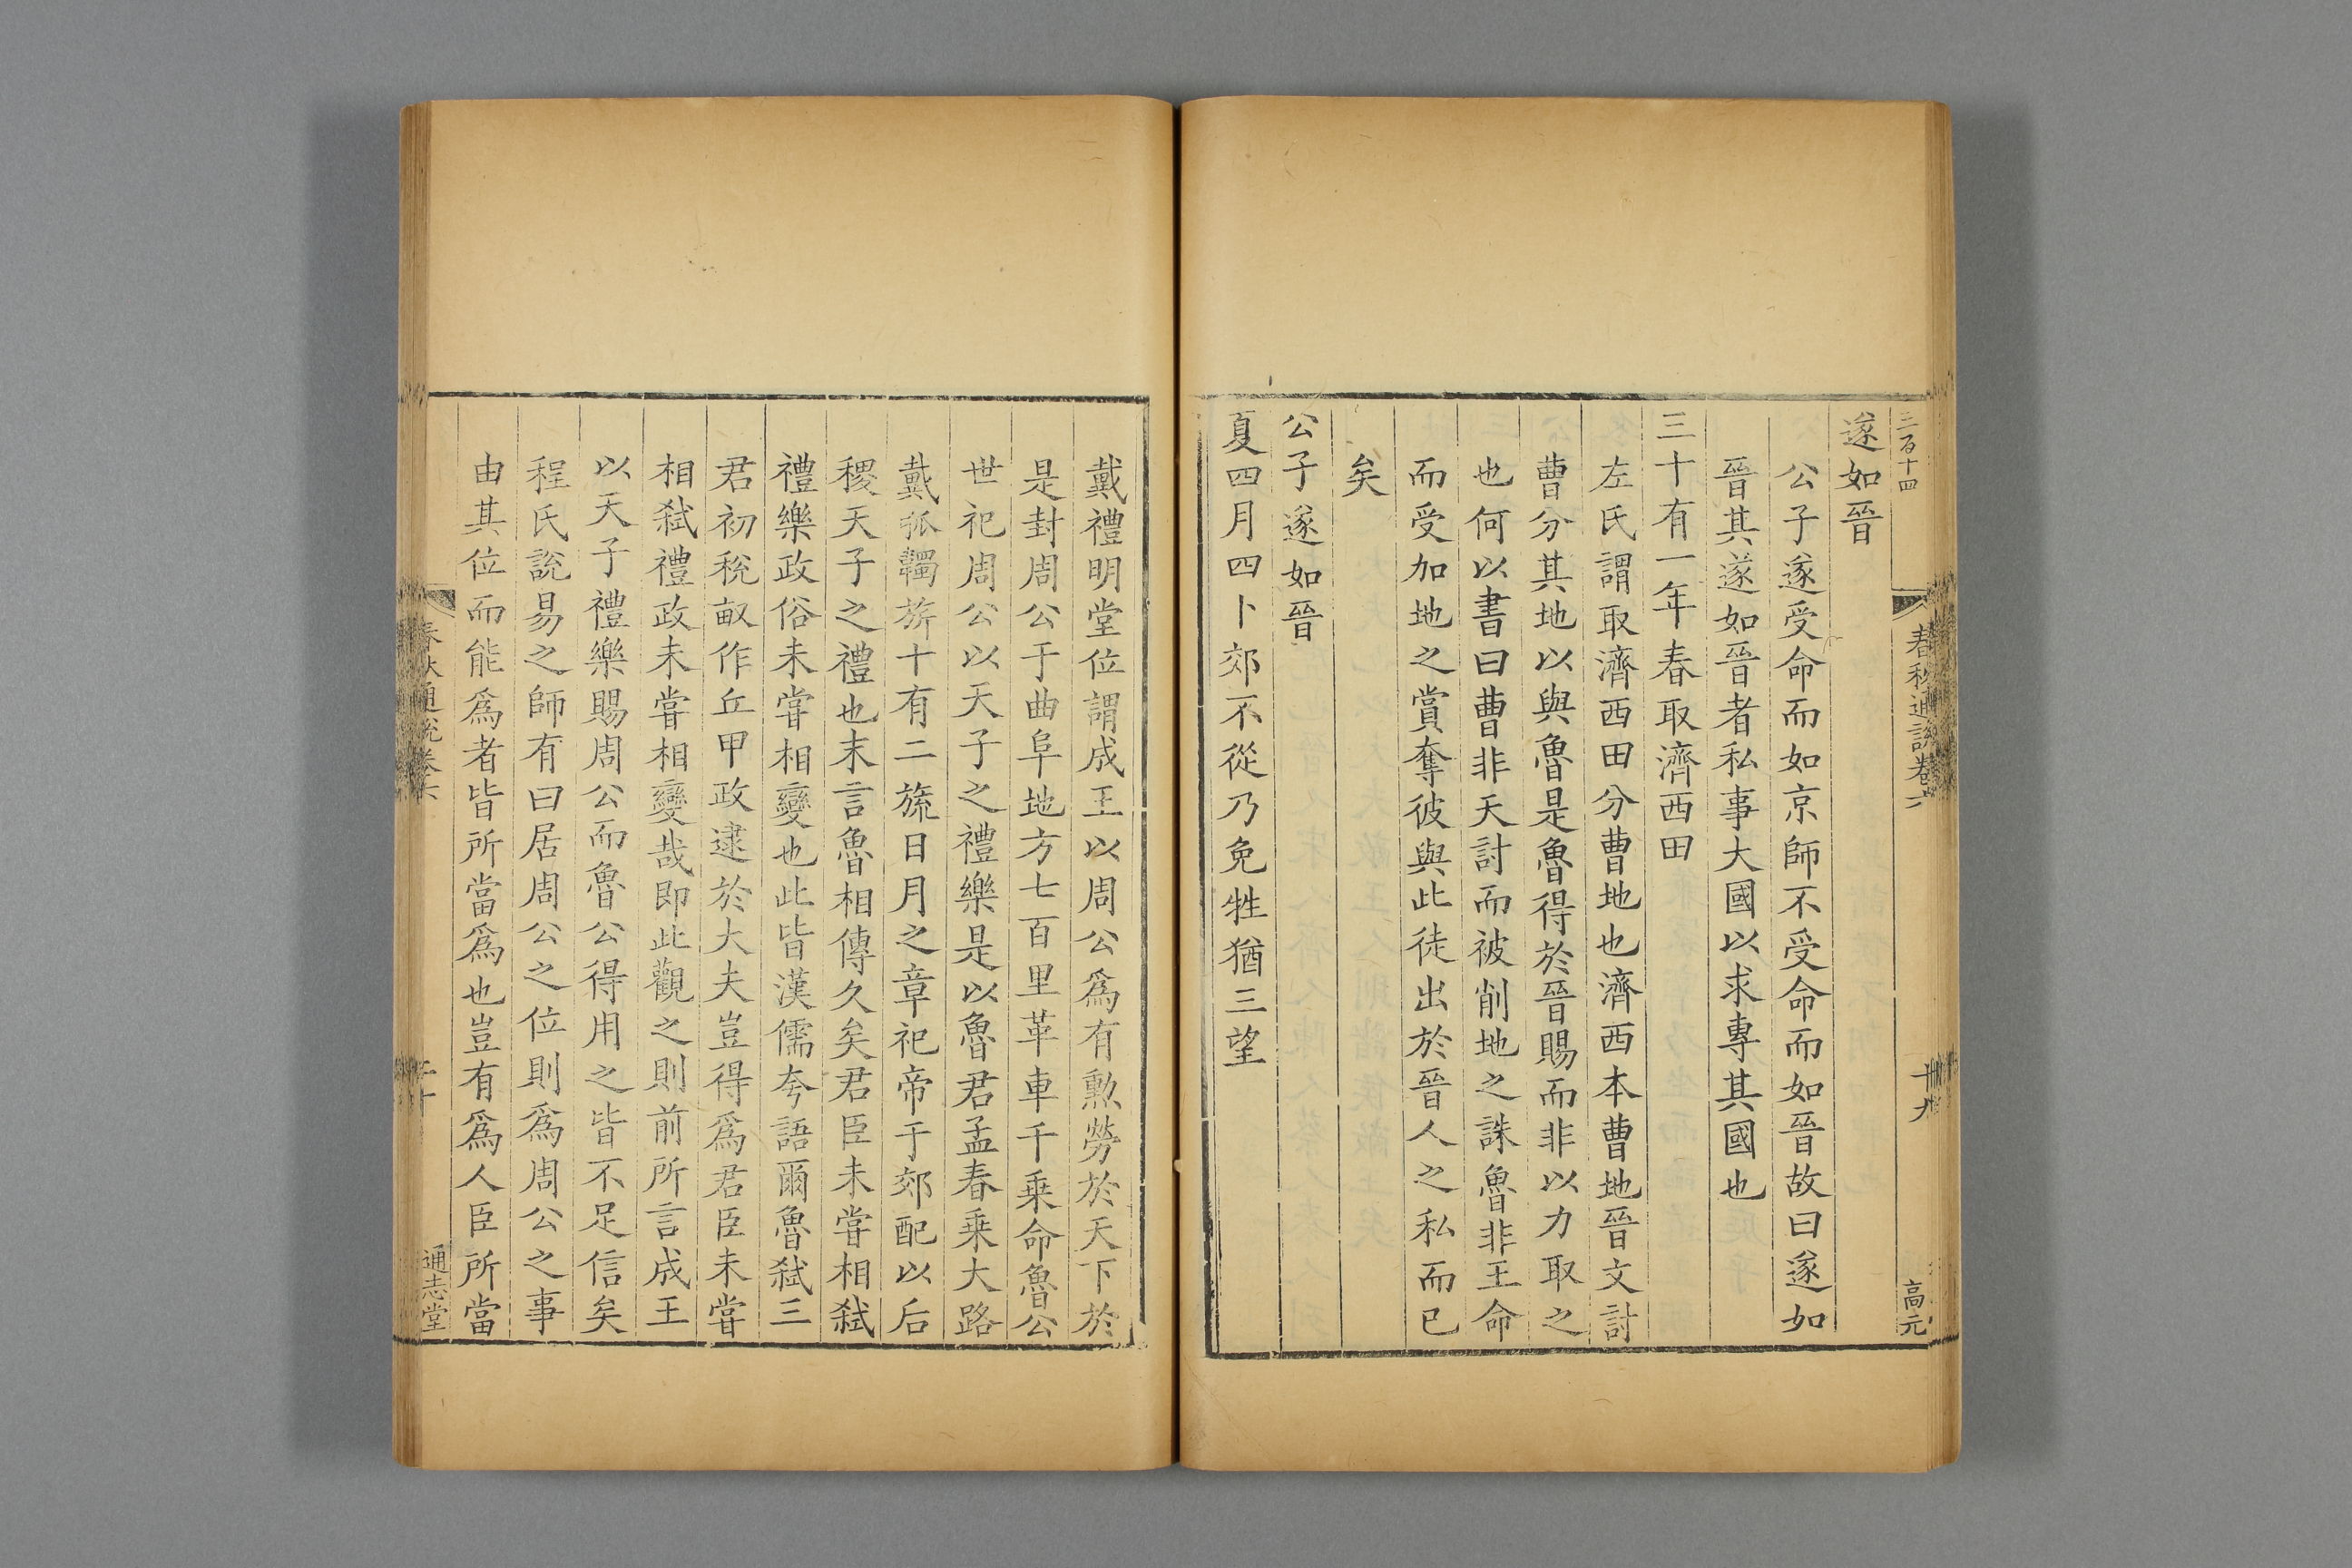 三百十四
春秋通說卷六
十九
高元
遂如晉
公子遂受命而如京師不受命而如晉故曰遂如
晉其遂如晉者私事大國以求專其國也
三十有一年春取濟西田
左氏謂取濟西田分曹地也濟西本曹地晉文討
曹分其地以與魯是魯得於晉賜而非以力取之
也何以書曰曹非天討而被削地之誅魯非王命
而受加地之賞奪彼與此徒出於晉人之私而已
矣
公子遂如晉
夏四月四卜郊不從乃免牲猶三望
戴禮明堂位謂成王以周公爲有勲勞於天下於
是封周公于曲阜地方七百里革車千乗命魯公
世祀周公以天子之禮樂是以魯君孟春乗大路
戴弧韣旂十有二旒日月之章祀帝于郊配以后
稷天子之禮也末言魯相傳久矣君臣未嘗相弑
禮樂政俗未嘗相變也此皆漢儒夸語爾魯弑三
君初稅畝作丘甲政逮於大夫豈得爲君臣未嘗
相弑禮政未嘗相變哉即此觀之則前所言成王
以天子禮樂賜周公而魯公得用之皆不足信矣
程氏說易之師有曰居周公之位則爲周公之事
由其位而能爲者皆所當爲也豈有爲人臣所當
春秋通說卷六
二十
通志堂